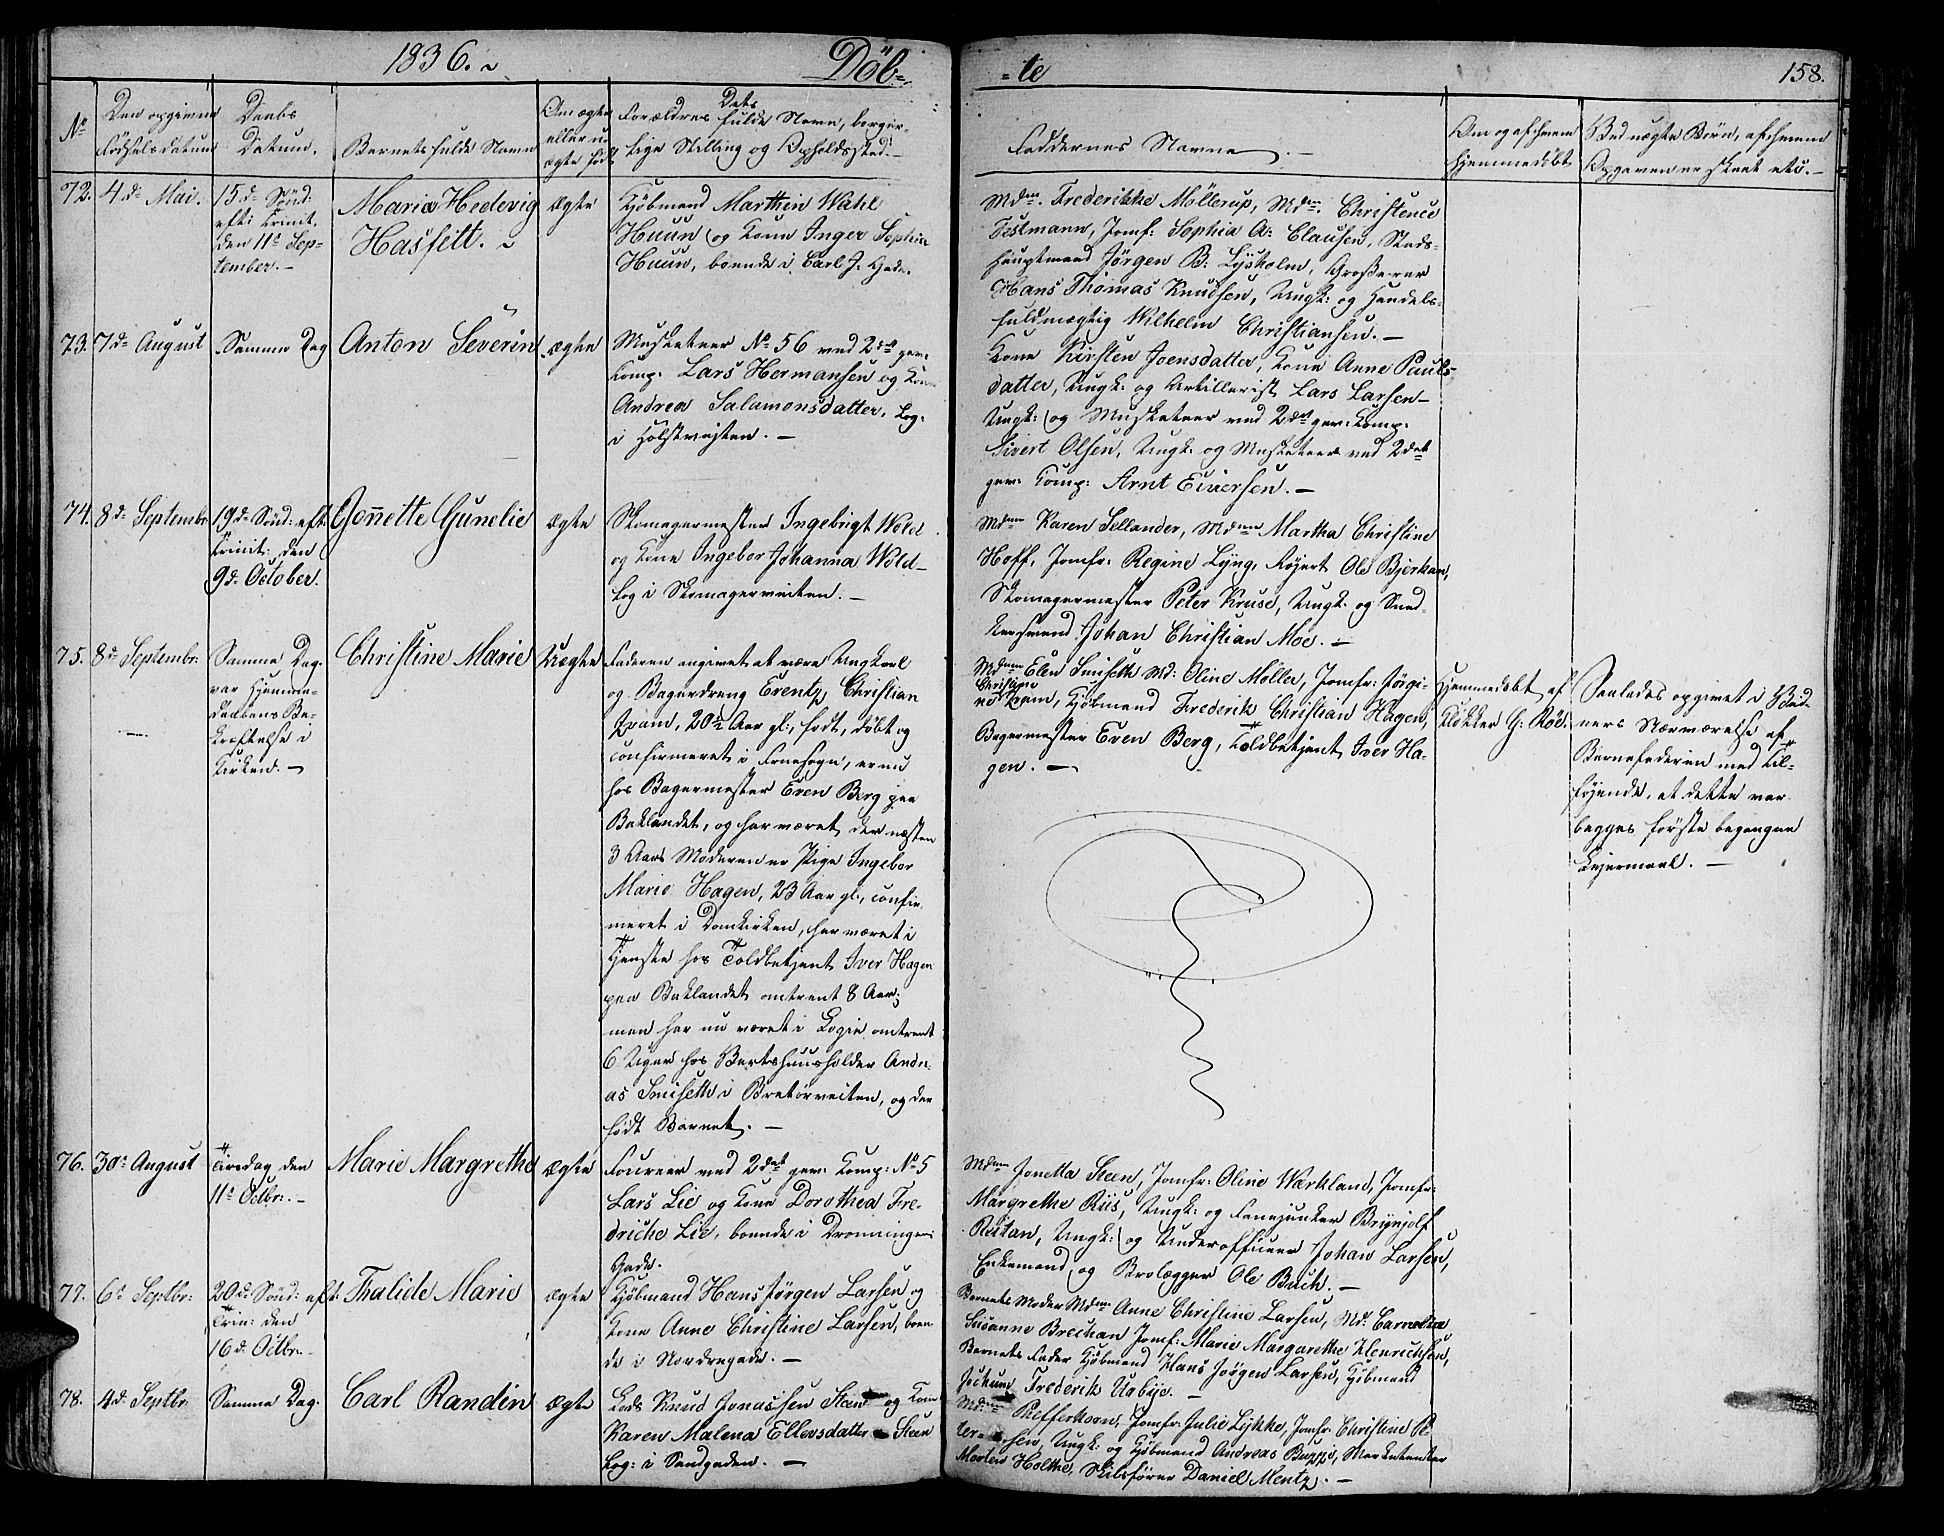 1836.
Döb-
-te
158.
No
Den opgivne
Födselsdatum
Daabs
Datum.
Barnets fulde Navn
Om ægte
eller u-
ægte föd
Forældres fulde Navn, borger-
lige Stilling og Opholdssted.-
Faddernes Navne.-
Om og af hvem
hjemmedöbt
Ved uægte Börn, af hvem
Opgaven er skeet etc.-
72.
4de Mai.
15de Sönd:
eft: Trinit.
den 11te Sep-
tember.-
Maria Hedevig
Hasfelt.
ægte
Kjöbmand Marthin Wahl
Huun og Kone Inger Sophia
Huun, boende i Carl J. Gade.
Mdm. Frederikke Möllerup, Mdm. Christence
Festmann, Jomf: Sophia A: Clausen, Stads-
hauptmand Jörgen B: Lysholm, Grosserer
Hans Thomas Knudsen, Ungk: og Handels-
fuldmægtig Wilhelm Christiansen.-
73.
7de August
Samme Dag
Anton Severin
ægte
Musketeer No 56 ved 2det gev:
Komp: Lars Hermansen og Kone
Andrea Salamonsdatter, Log:
i Holstveiten.-
Kone Kirsten Joensdatter, Kone Anne Pauls-
datter, Ungk: og Artillerist Lars Larsen-
Ungk: og Musketeer ved 2det gev: Komp:
Sivert Olsen, Ungk: og Musketeer ved 2det
gev: Komp: Arnt Eiversen.-
74.
8de Septembr
19de Sönd: eft:
Trinit: den
9de October.
Jonnette Gunelie
ægte
Skomagermester Ingebrigt Wold
og Kone Ingebor Johanna Wold-
Log i Skomagerveiten.-
Mdme Karen Sellander, Mdme Martha Christine
Hoff, Jomfr: Regine Lyng, Föyert Ole Bjerkan,
Skomagermester Peter Kruse, Ungk: og Sned-
kersvend Johan Christian Moe.-
75.
8de Septembr:
Samme Dag
var Hjemme-
daabens Be-
kræftelse i
Kirken.-
Christine Marie
Uægte
Faderen angivet at være Ungkarl
og Bagerdreng Erentz Christian
Qvam, 20½ Aar gl:, födt, döbt og
confirmeret i Frue Sogn, er nu
hos Bagermester Even Berg paa
Baklandet, og har været der næsten
3 Aar. Moderen er Pige Ingebor
Marie Hagen, 23 Aar gl:, confir-
meret i Domkirken, har været i
Tjeneste hos Toldbetjent Iver Hagen
paa Baklandet omtrent 8 Aar;
men har nu været i Logie omtrent
6 Uger hos Vertshuusholder Andre-
as Smiseth i Bretörveiten, og der
födt Barnet.-
Mdme Elen Smiseth Md: Oline Möller, Jomfr: Jörgi-
ne Christine Qvam, Kjöbmand Frederik Christian Hagen,
Bagermester Even Berg, Toldbetjent Iver Ha-
gen.-
Hjemmedöbt af
Klokker G: Röe.
Saaledes opgivet i Vid-
ners Nærværelse af
Barnefaderen med Til-
föjende, at dette var
begges förste begangne
Leiermaal.-
76.
30te August
Tirsdag den
11te Octbr:-
Marie Margrethe
ægte
Foureer ved 2det gev: Komp: No 5
Lars Lie og Kone Dorothea Fre-
driche Lie, boende i Dronningens
Gade.
Mdme Jonetta Steen, Jomfr: Oline Værkland, Jomfr:
Margrethe Riis, Ungk: og Fanejunker Brynjolf
Reitan, Ungk: og Underofficeer Johan Larsen,
Enkemand og Brolægger Ole Buch.-
77.
6te Septbr:
20de Sönd: eft:
Trin: den
16de Octbr.
Thalide Marie
ægte
Kjöbmand Hans Jörgen Larsen og
Kone Anne Christine Larsen, boen-
de i Nordregade.-
Barnets Moder Mdme Anne Christine Larsen, Md: Carnelia
Susanne Brechan Jomf: Marie Margarethe Henrichsen,
Barnets Fader Kjöbmand Hans Jörgen Larsen, Kjöbmand
Jochum Frederik Ugbije.-
78.
4de Septbr
Samme Dag.
Carl Randin
ægte
Lods Knud Jonassen Steen og Kone
Karen Malena Ellevsdatter Steen
Log: i Sandgaden.-
Mdme Phefferkorn, Jomfr: Julie Lykke, Jomfr: Christine Pe-
tersen, Ungk: og Kjöbmand Andreas Buppe, Marketenter
Morten Holthe, Skibsförer Daniel Mentz.-